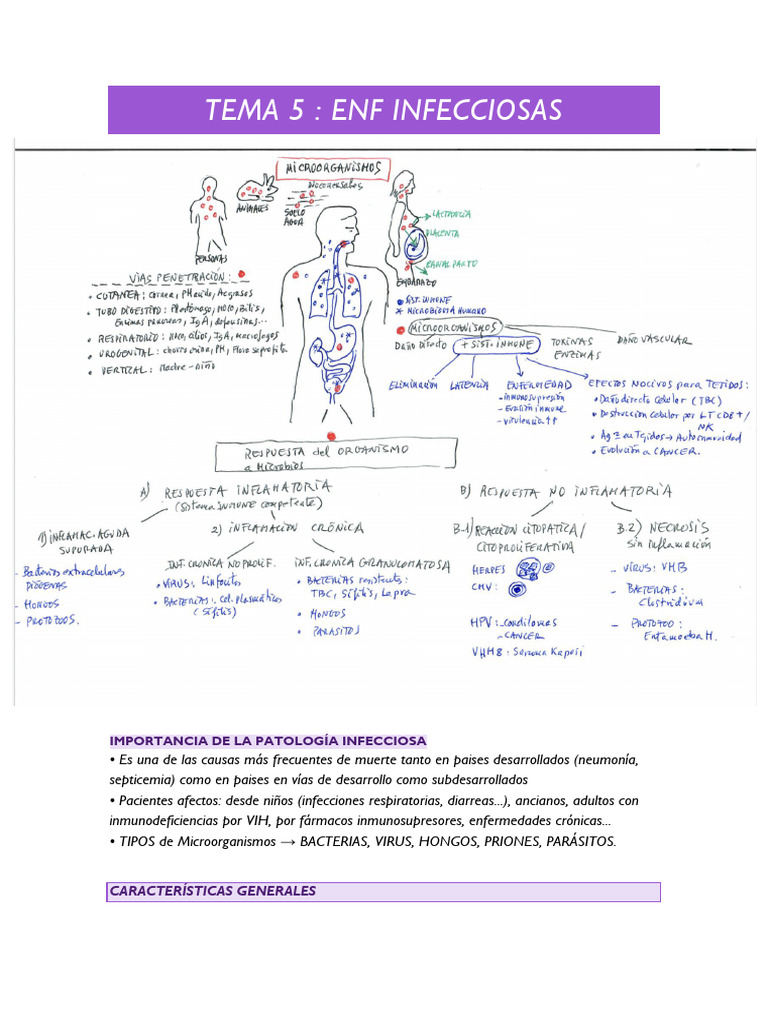 TEMA 5 : ENF INFECCIOSAS
MICROORGANISMOS
PERSONAS
ANIMALES
NOCOMENSALES
SUELO
AGUA
LACTANCIA
PLACENTA
CANAL PARTO
EMBARAZO
SIST. INMUNE
* MICROBIOTA HUMANO
VÍAS PENETRACIÓN:
• CUTANEA: Cornea, PH acido, Ac grasos
• TUBO DIGESTIVO: PH estómago, moco, Bilis,
Enzimas pancreas, IgA, defensinas...
• RESPIRATORIO: moco, cilios, IgA, macrofagos
• UROGENITAL: chorro orina, PH, Flora saprofita
• VERTICAL: Madre-niño
MICROORGANISMOS
Daño Directo
+ SIST. INMUNE
TOXINAS
ENZIMAS
DAÑO VASCULAR
ELIMINACIÓN
LATENCIA
ENFERMEDAD
- inmunosupresión
- Evasión inmune
- virulencia ↑↑
EFECTOS NOCIVOS para TEJIDOS:
• Daño directo celular (TBC)
• Destruccion celular por LT CD8+/
NK
• Ag ≅ en Tejidos → Autoinmunidad
• Evolución a CANCER.
RESPUESTA del ORGANISMO
a Microbios
A) RESPUESTA INFLAMATORIA
(Sistema INMUNE competente)
B) RESPUESTA NO INFLAMATORIA
1) INFLAMAC. AGUDA
SUPURADA
- Bacterias extracelulares
PIÓGENAS
- HONGOS
- PROTOZOOS.
2) INFLAMACION CRÓNICA
INF. CRONICA NO PROLIF.
• VIRUS: Linfocitos
• BACTERIAS: Cel. plasmáticas
(Sífilis)
INF. CRONICA GRANULOMATOSA
• BACTERIAS resistentes:
TBC, Sífilis, Lepra
• HONGOS
• PARASITOS
B-1) REACCION CITOPATICA/
CITOPROLIFERATIVA
HERPES
CMV:
HPV: condilomas
-CANCER
VHH8: Sarcoma Kaposi
B.2) NECROSIS
sin inflamación
- VIRUS: VHB
- BACTERIAS:
Clostridium
- PROTOZOO:
Entamoeba H.
IMPORTANCIA DE LA PATOLOGÍA INFECCIOSA
• Es una de las causas más frecuentes de muerte tanto en países desarrollados (neumonía,
septicemia) como en países en vías de desarrollo como subdesarrollados
• Pacientes afectos: desde niños (infecciones respiratorias, diarreas...), ancianos, adultos con
inmunodeficiencias por VIH, por fármacos inmunosupresores, enfermedades crónicas...
• TIPOS de Microorganismos → BACTERIAS, VIRUS, HONGOS, PRIONES, PARÁSITOS.
CARACTERÍSTICAS GENERALES